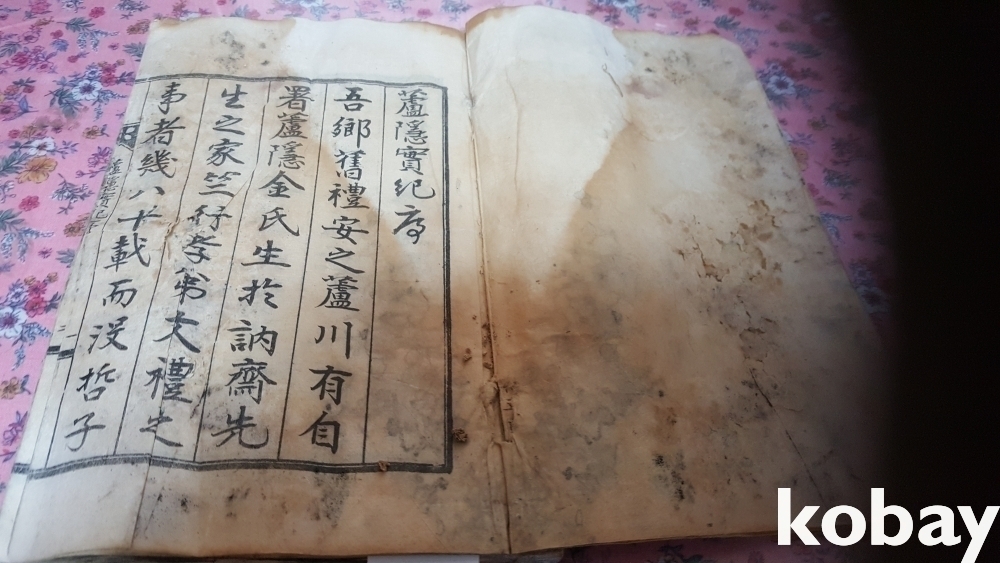 蘆隱實紀序
吾鄉舊禮安之蘆川有自
署蘆隱金氏生於訥齋先
生之家竺行孝弟禮
事者幾八十載而沒哲子
蘆隱實紀
kobay